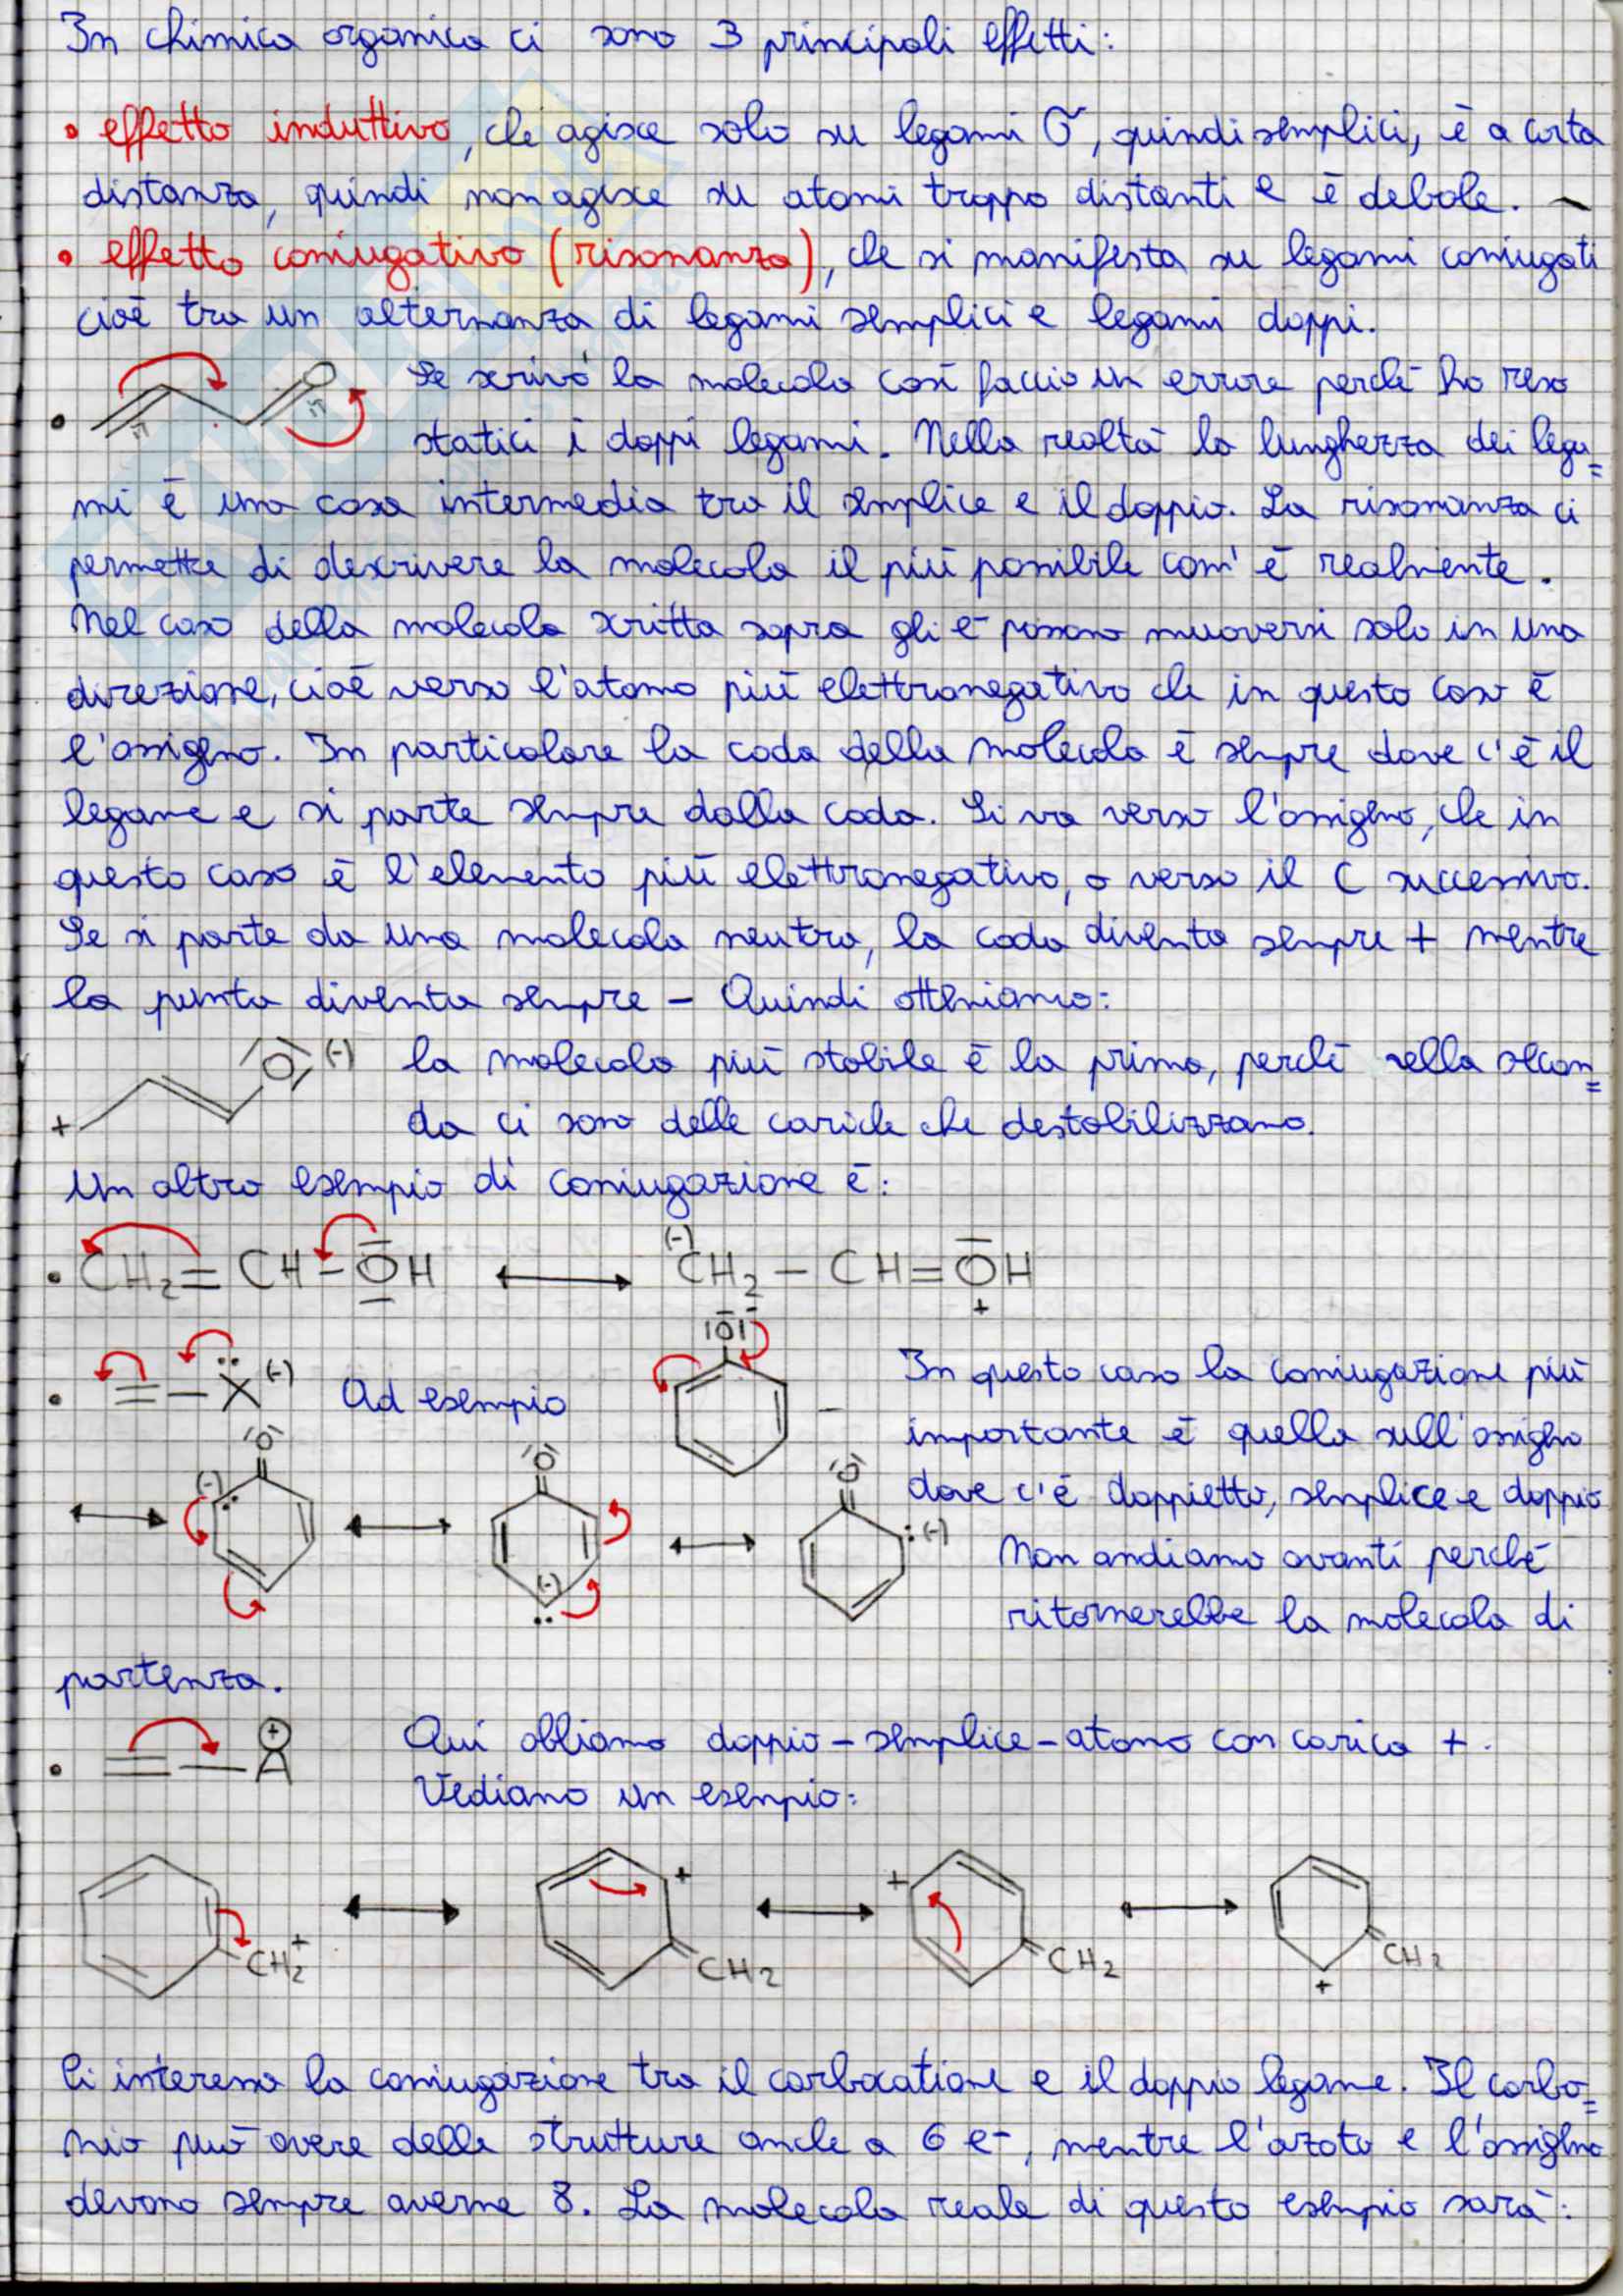 In chimica organica ci sono 3 principali effetti:
• effetto induttivo, che agisce solo su legami σ, quindi semplici, è a corta
distanza, quindi non agisce su atomi troppo distanti e è debole.
• effetto coniugativo (risonanza), che si manifesta su legami coniugati
cioè tra un alternanza di legami semplici e legami doppi.
• π π O Se scrivo la molecola così faccio un errore perché ho reso
statici i doppi legami. Nella realtà la lunghezza dei lega=
mi è una cosa intermedia tra il semplice e il doppio. La risonanza ci
permette di descrivere la molecola il più possibile com'è realmente.
Nel caso della molecola scritta sopra gli e- possono muoversi solo in una
direzione, cioè verso l'atomo più elettronegativo che in questo caso è
l'ossigeno. In particolare la coda della molecola è sempre dove c'è il
legame e si parte sempre dalla coda. Si va verso l'ossigeno, che in
questo caso è l'elemento più elettronegativo, o verso il C successivo.
Se si parte da una molecola neutra, la coda diventa sempre + mentre
la punta diventa sempre - Quindi otteniamo:
+ O (-) la molecola più stabile è la prima, perché nella secon=
da ci sono delle cariche che destabilizzano.
Un altro esempio di coniugazione è:
• CH2 = CH - OH ⟷ (-) CH2 - CH = OH +
• = - X (-) Ad esempio |O| - In questo caso la coniugazione più
importante è quella sull'ossigeno
dove c'è doppietto, semplice e doppio
⟷ O (-) ⟷ O (-) ⟷ O (-) Non andiamo avanti perché
ritornerebbe la molecola di
partenza.
• = - A + Qui abbiamo doppio - semplice - atomo con carica +.
Vediamo un esempio:
CH2+ ⟷ + CH2 ⟷ + CH2 ⟷ + CH2
Ci interessa la coniugazione tra il carbocatione e il doppio legame. Il carbo=
nio può avere delle strutture anche a 6 e-, mentre l'azoto e l'ossigeno
devono sempre averne 8. La molecola reale di questo esempio sarà: